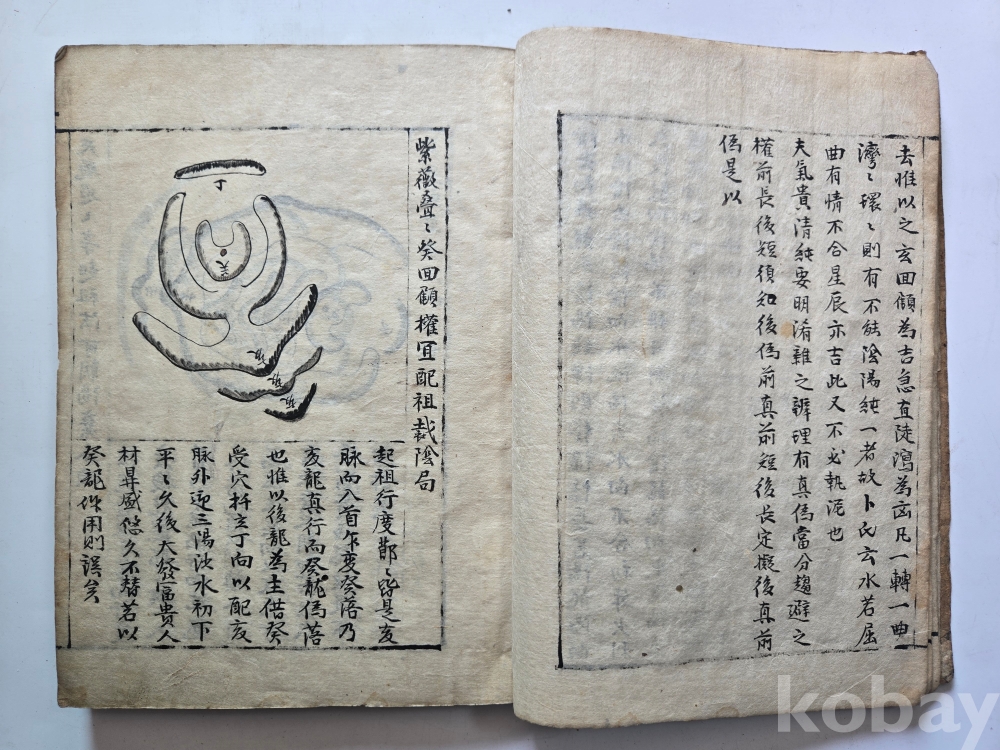 去惟以之玄回顧為吉急直陡瀉為凶凡一轉一曲
灣〻環〻則有不能陰陽純一者故卜氏云水若屈
曲有情不合星辰亦吉此又不必執泥也
夫氣貴清純要明淆雜之辨理有真偽當分趨避之
權前長後短須知後偽前真前短後長定擬後真前
偽是以
紫薇叠〻癸回顧權宜配祖裁陰局
丁
癸
起祖行度鄣〻皆是亥
脉而入首乍変癸落乃
亥龍真行而癸龍偽落
也惟以後龍為主借癸
受穴扦立丁向以配亥
脉外迎三陽洩水初下
平〻久後大發富貴人
材昇盛悠久不替若以
癸龍作用則誤矣
kobay